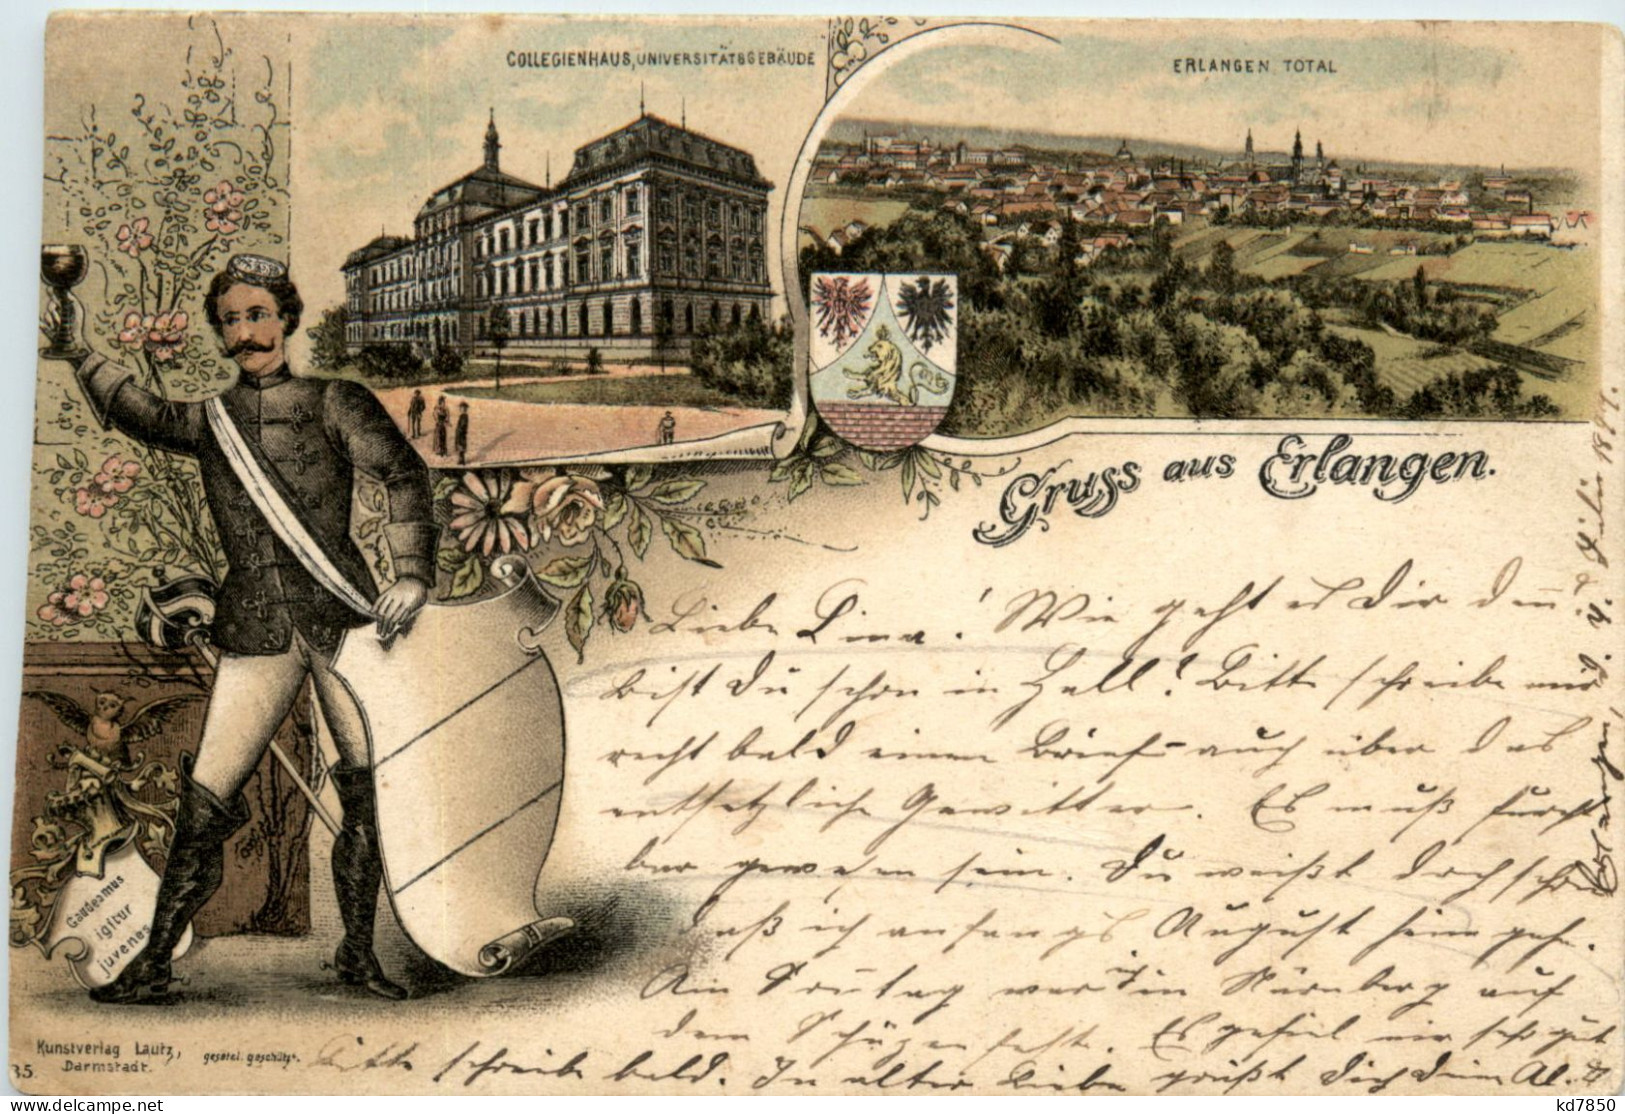 COLLEGIENHAUS, UNIVERSITÄTSGEBÄUDE
ERLANGEN TOTAL
Gruss aus Erlangen.
Erlangen, d. 4. Juli 1897.
Liebe Lina! Wie geht es Dir denn
bist Du schon in Hall? Bitte schreibe mir
recht bald einen Brief auch über das
entsetzliche Gewitter. Es muß furcht
bar gewesen sein. Du weißt doch schon
daß ich anfangs August heim gehe.
Am Sonntag war ich in Nürnberg auf
dem Schützenfeste. Es gefiel mir sehr gut
Bitte schreibe bald. In alter Liebe grüßt Dich Dein Al.
Gaudeamus
igitur
juvenes
Kunstverlag Lautz,
Darmstadt.
gesetzl. geschützt.
35.
kd7850